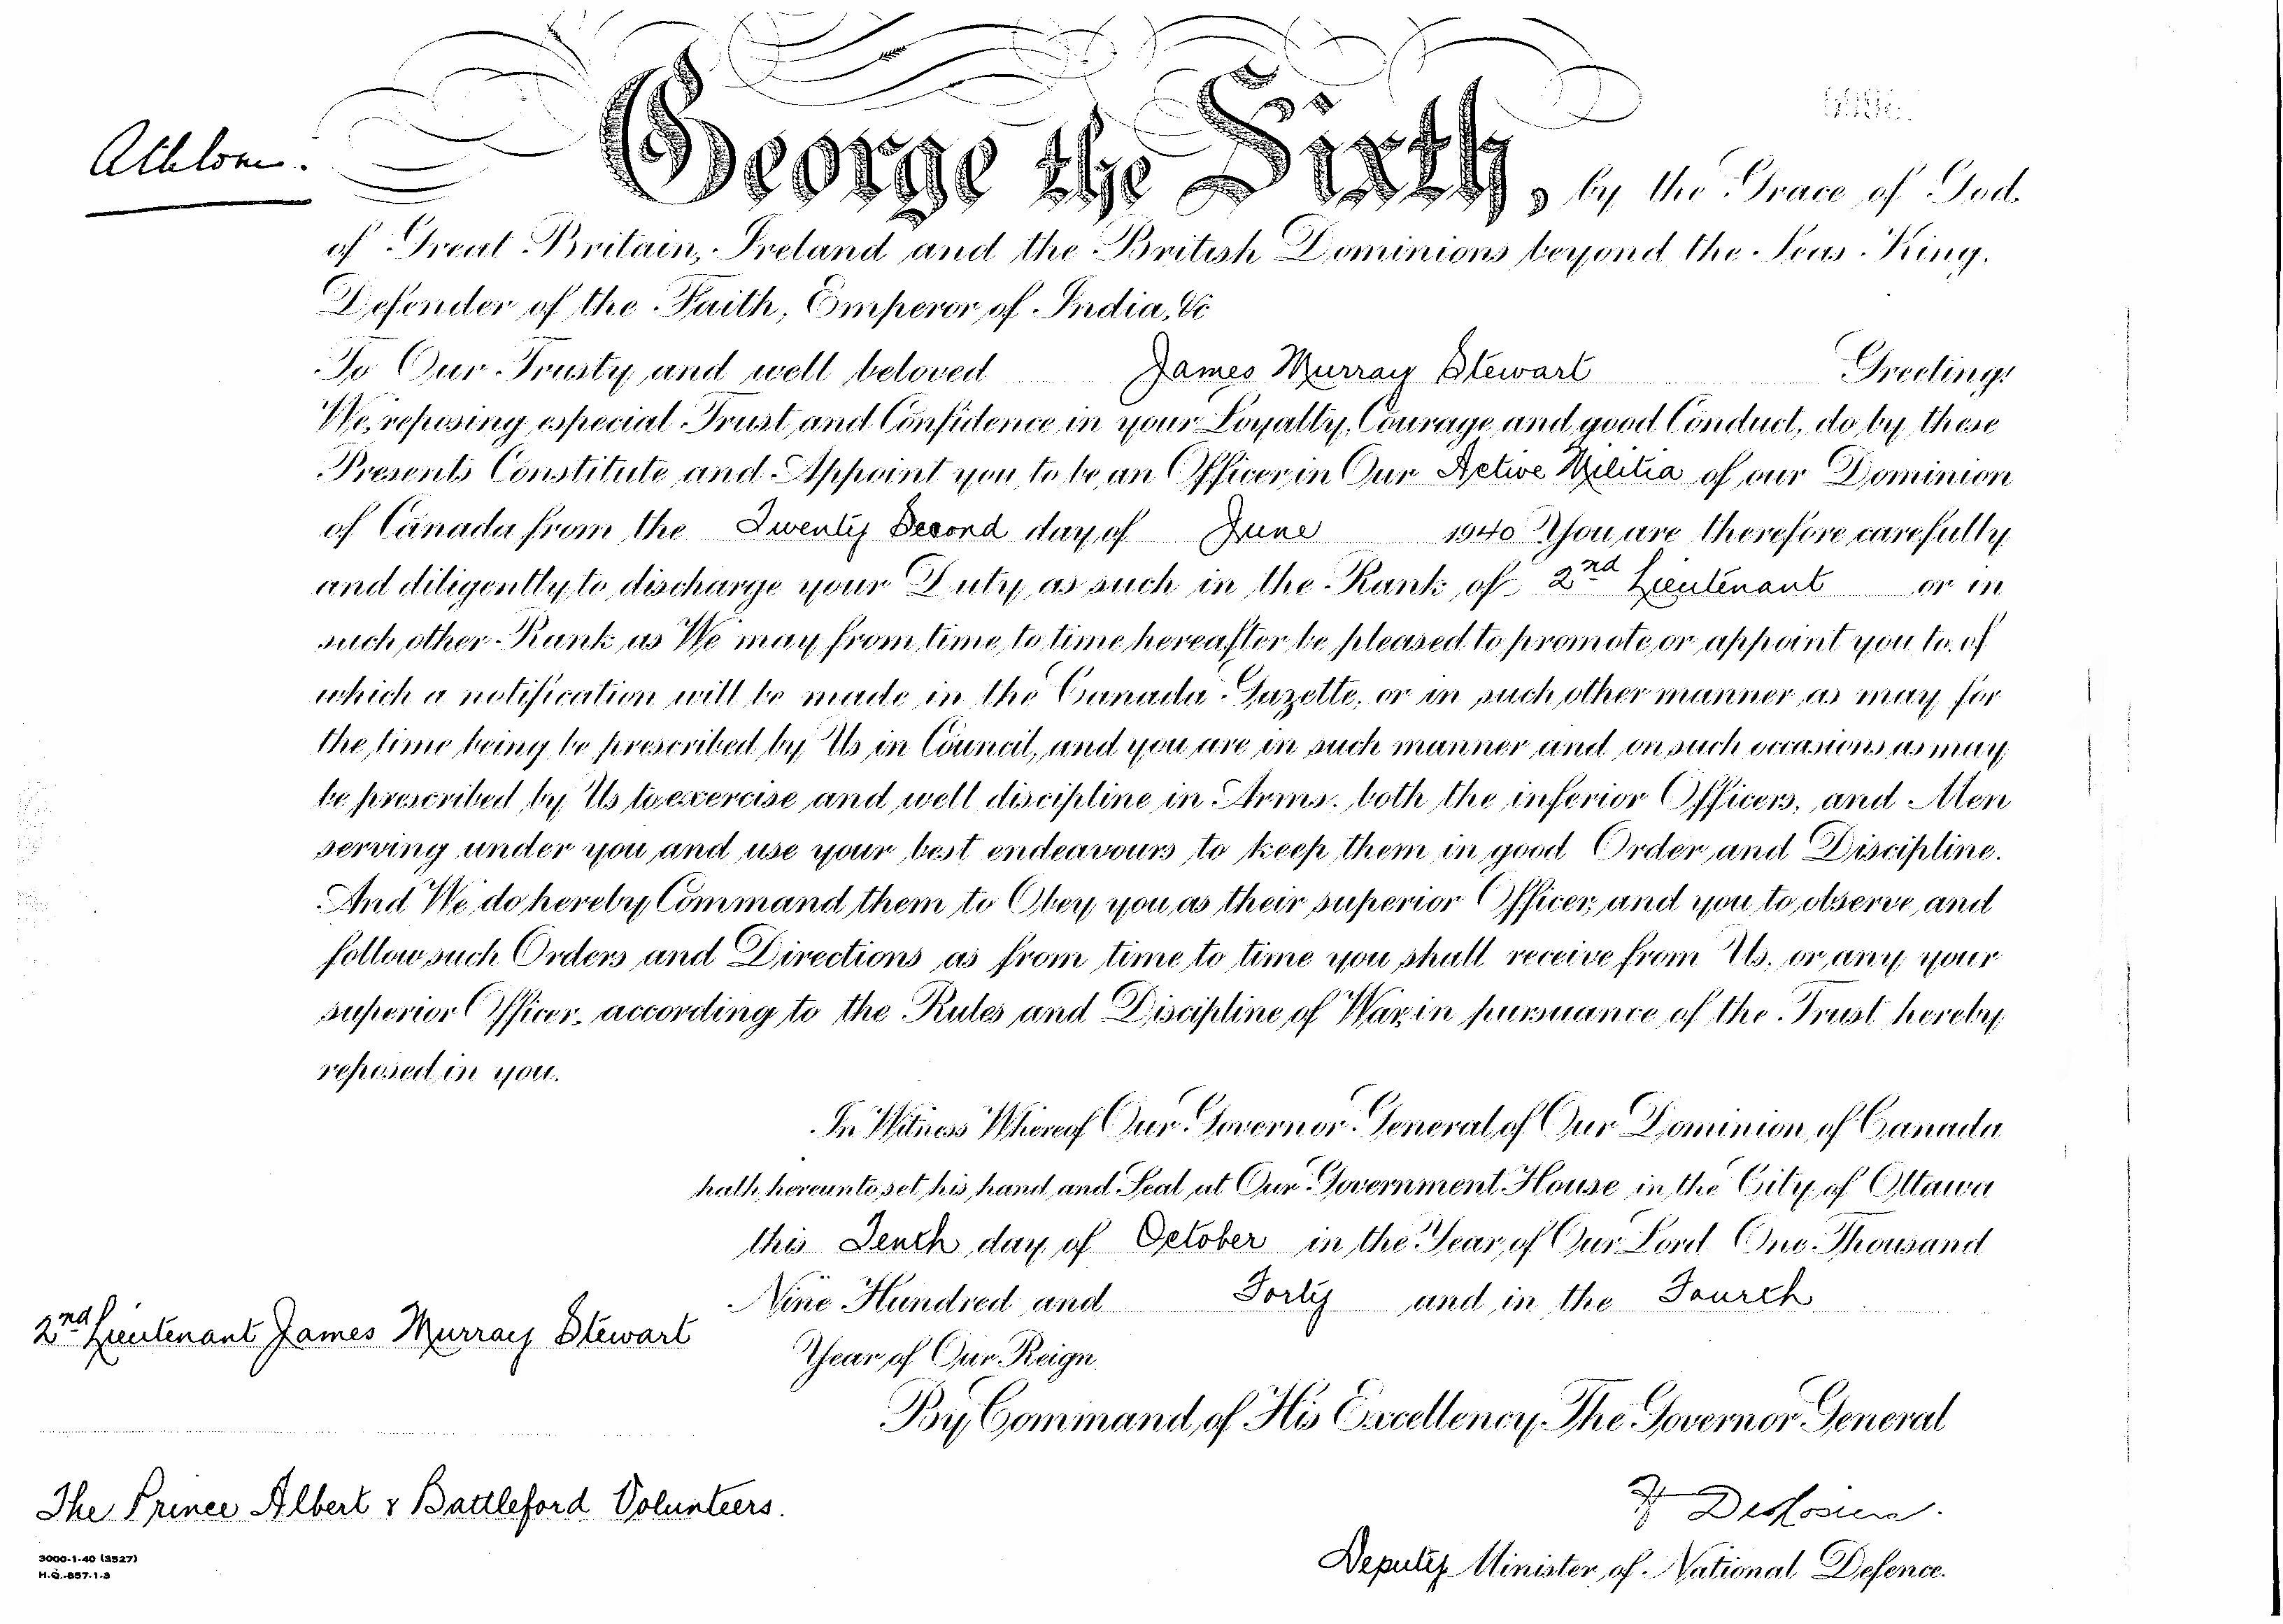 Athlone.
George the Sixth, by the Grace of God,
of Great Britain, Ireland and the British Dominions beyond the Seas King,
Defender of the Faith, Emperor of India, &c
To Our Trusty and well beloved James Murray Stewart Greeting:
We, reposing especial Trust and Confidence in your Loyalty, Courage and good Conduct, do by these
Presents Constitute and Appoint you to be an Officer in Our Active Militia of our Dominion
of Canada from the Twenty Second day of June 1940 You are therefore carefully
and diligently to discharge your Duty as such in the Rank of 2nd Lieutenant or in
such other Rank as We may from time to time hereafter be pleased to promote or appoint you to, of
which a notification will be made in the Canada Gazette, or in such other manner as may for
the time being be prescribed by Us in Council, and you are in such manner and on such occasions as may
be prescribed by Us to exercise and well discipline in Arms, both the inferior Officers, and Men
serving under you and use your best endeavours to keep them in good Order and Discipline.
And We do hereby Command them to Obey you as their superior Officer, and you to observe and
follow such Orders and Directions as from time to time you shall receive from Us, or any your
superior Officer, according to the Rules and Discipline of War, in pursuance of the Trust hereby
reposed in you.
In Witness Whereof Our Governor General of Our Dominion of Canada
hath hereunto set his hand and Seal at Our Government House in the City of Ottawa
this Tenth day of October in the Year of Our Lord One Thousand
Nine Hundred and Forty and in the Fourth
Year of Our Reign.
By Command of His Excellency The Governor General
2nd Lieutenant James Murray Stewart
The Prince Albert & Battleford Volunteers.
DesRosiers.
Deputy Minister of National Defence.
3000-1-40 (3527)
H.Q.-857-1-3